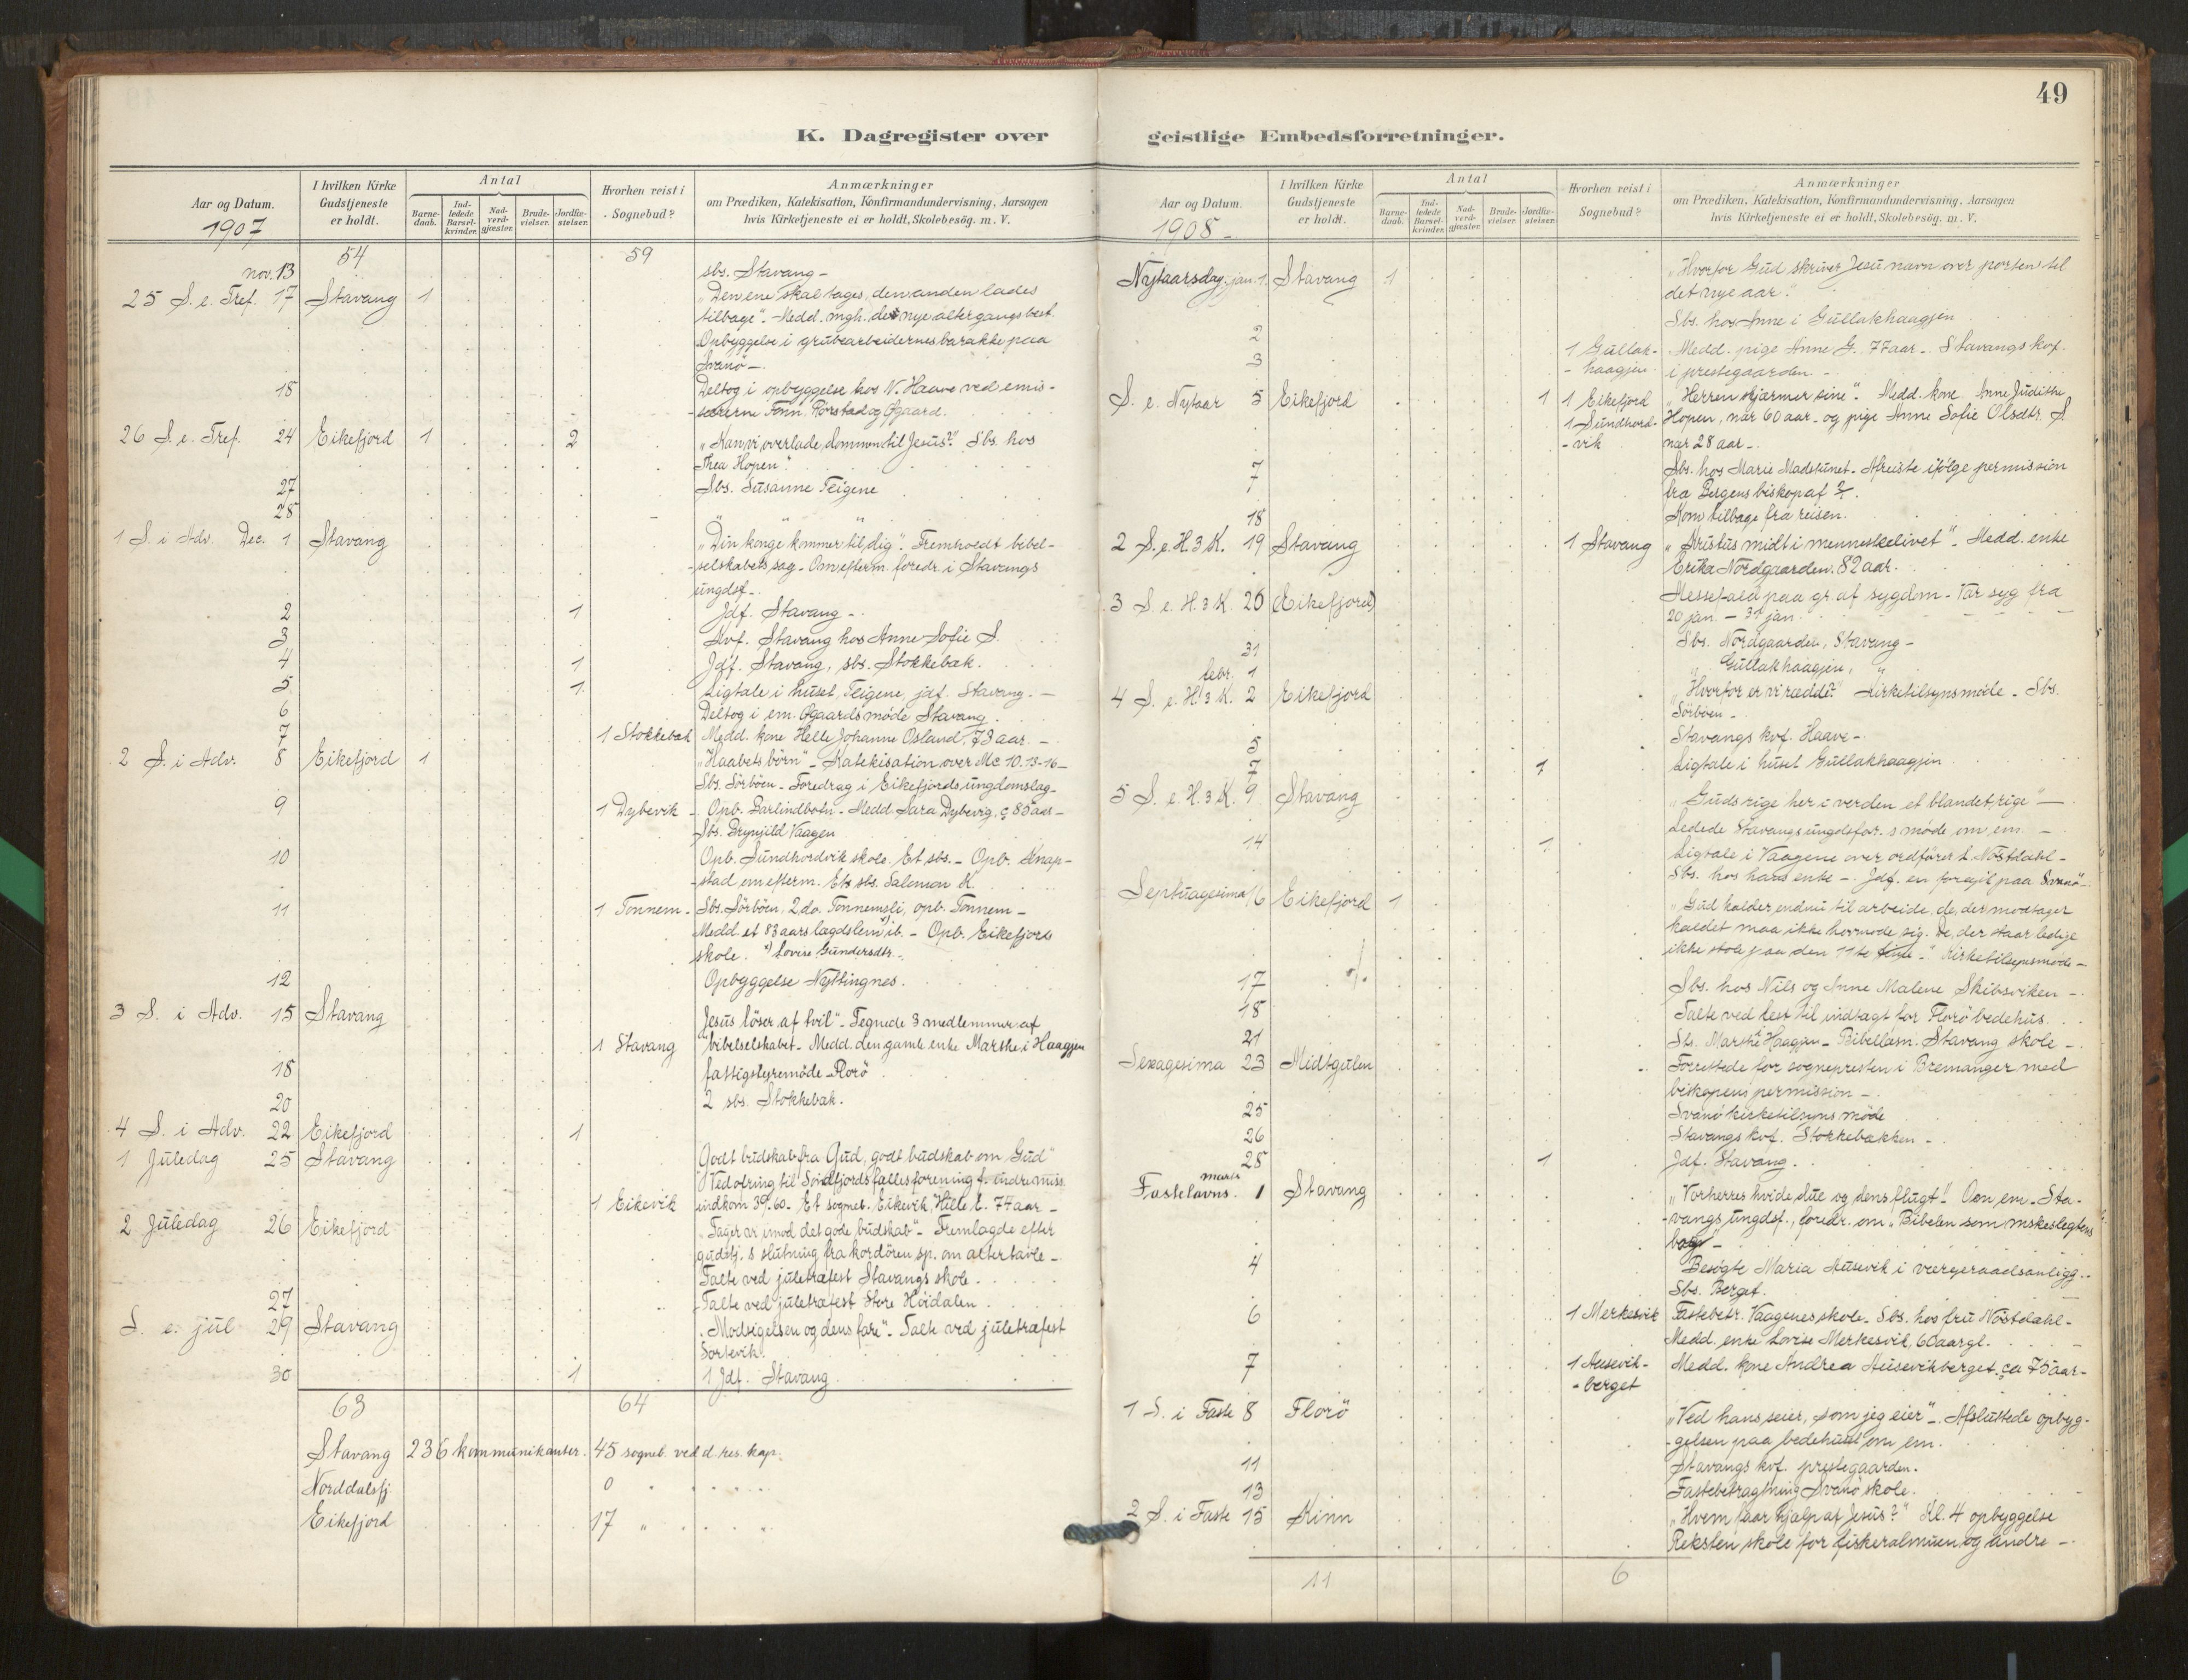 49
K. Dagregister over geistlige Embedsforretninger.
Aar og Datum.
1907
I hvilken Kirke Gudstjeneste er holdt.
Antal
Barnedaab.
Indledede Barselkvinder.
Nadverdgjæster.
Brudevielser.
Jordfæstelser.
Hvorhen reist i Sognebud?
Anmærkninger
om Prædiken, Katekisation, Konfirmandundervisning, Aarsagen
hvis Kirketjeneste ei er holdt, Skolebesög. m. V.
54 59
nov. 13 sbs. Stavang -
25 S. e. Tref. 17 Stavang 1 "Den ene skal tages, den anden lades
tilbage". Medd. mgh. de nye altergangsbest.
Opbyggelse i grubearbeidernes barakke paa
Svanö -.
18 Deltog i opbyggelse hos N. Haave ved emis-
særerne Fonn, Rörstad og Ögaard.
26 S. e. Tref. 24 Eikefjord 1 2 "Kan vi overlade dommen til Jesus?" Sbs. hos
Thea Hopen".
27 Sbs. Susanne Teigene
28 " " "
1 S. i Adv. Dec. 1 Stavang "Din konge kommer til dig". Fremholdt bibel-
selskabets sag - Om efterm. foredr. i Stavangs
ungdsf -.
2 1 Jdf. Stavang -.
3 Kvf. Stavang hos Anne Sofie S.
4 1 Jdf. Stavang, sbs. Stokkebak.
5 1 Ligtale i huset, Teigene, jdf. Stavang. -
6 Deltog i em. Ögaards möde Stavang.
7 1 Stokkebak Medd. kone Helle Johanne Osland, 73 aar. -
2 S. i Adv. 8 Eikefjord 1 "Haabets börn" - Katekisation over Mc 10.13-16 -
Sbs. Sörböen - Foredrag i Eikefjords ungdomslag -
9 1 Dybevik - Opb. Barlindbotn - Medd. Sara Dybevig, c 85 aar -
Sbs. Brynjild Vaagen
10 Opb. Sundhordvik skole. Et sbs. - Opb. Knap-
stad om efterm. Et sbs. Salomon K.
11 1 Tonnem - Sbs. Sörböen, 2 do. Tonnemsli, opb. Tonnem -
Medd. et 83 aars lægdslem x) ib. - Opb. Eikefjord
skole. x) Lovise Gundersdtr. -
12 Opbyggelse Nyttingnes.
3 S. i Adv. 15 Stavang Jesus löser af tvil" - Tegnede 3 medlemmer af
1 Stavang bibelselskabet - Medd. den gamle enke Marthe i Haagjen
18 fattigstyremöde - Florö
20 2 sbs. Stokkebak.
4 S. i Adv. 22 Eikefjord 1
1 Juledag 25 Stavang Godt budskab fra Gud, godt budskab om Gud"
Ved ofring til Söndfjords fællesforening f. indremiss.
1 Eikevik indkom 39.60 - Et sogneb. Eikevik, Hille E. 77 aar -
2 Juledag 26 Eikefjord "Tager vi imod det gode budskab" - Fremlagde efter
gudstj. s slutning fra kordören sp. om altertavle -
Talte ved juletræfest Stavangs skole.
27 Talte ved juletræfest Store Höidalen.
S. e. jul 29 Stavang "Modsigelsen og dens fare" - Talte ved juletræfest
Sortevik.
30 1 1 Jdf. Stavang.
63 64
Stavang 236 kommunikanter. 45 sogneb. ved d. res. kap.
Norddalsfj. 0 " " "
Eikefjord 17 " " "
Aar og Datum.
1908 -
I hvilken Kirke Gudstjeneste er holdt.
Antal
Barnedaab.
Indledede Barselkvinder.
Nadverdgjæster.
Brudevielser.
Jordfæstelser.
Hvorhen reist i Sognebud?
Anmærkninger
om Prædiken, Katekisation, Konfirmandundervisning, Aarsagen
hvis Kirketjeneste ei er holdt, Skolebesög. m. V.
Nytaarsdag, jan. 1. Stavang 1 "Hvorfor Gud skriver Jesu navn over porten til
det nye aar".
2 Sbs. hos Anne i Gullakhaagjen
3 1 Gullak- Medd. pige Anne G. 77 aar -. Stavangs kvf.
- haagjen i prestegaarden. -
S. e. Nytaar 5 Eikefjord 1 1 Eikefjord "Herren skjærmer sine". Medd. kone Anne Judithe
1 Sundhord- Hopen, nær 60 aar - og pige Anne Sofie Olsdtr. S.
- vik nær 28 aar -.
7 Sbs. hos Marie Madstunet - Afreiste ifölge permission
7 fra Bergens biskop af
18 Kom tilbage fra reisen.
2 S. e. H. 3 K. 19 Stavang 1 Stavang "Kristus midt i menneskelivet" - Medd. enke
Erika Nordgaarden. 82 aar.
3 S. e. H. 3 K. 26 (Eikefjord) Messefald paa gr. af sygdom - Var syg fra
20 jan. - 31 jan.
31 Sbs. Nordgaarden, Stavang -
febr. 1 " Gullakhaagjen, "
4 S. e. H. 3 K. 2 Eikefjord "Hvorfor er vi rædde?" Kirketilsynsmöde - Sbs.
Sörböen -
5 Stavangs kvf. Haave -.
7 1 Ligtale i huset Gullakhaagjen
5 S. e. H. 3 K. 9 Stavang "Guds rige her i verden et blandet rige" -
Ledede Stavangs ungdsfor. s möde om em. -
14 1 Ligtale i Vaagene over ordförer L. Nöstdahl -
Sbs. hos hans enke -. Jdf. en foregik paa Svanö -
Septuagesima 16 Eikefjord 1 "Gud kalder endnu til arbeide, de, der modtager
kaldet maa ikke hovmode sig. De, der staar ledige
ikke stole paa den 11te time -". Kirketilsynsmöde -
17 Sbs. hos Nils og Anne Malene Skibsviken -
18 Talte ved fest til indtægt for Florö bedehus.
21 Sbs. Marthe Haagjen - Bibellæsn. Stavang skole -
Sexagesima 23 Midtgulen Forrettede for sognepresten i Bremanger med
biskopens permission -.
25 Svanö kirketilsynsmöde
26 Stavangs kvf. Stokkebakken -
28 1 Jdf. Stavang.
Fastelavns. marts 1 Stavang "Vorherres hvide due og dens flugt". Om em. Sta-
- vangs ungdsf., foredr. om "Bibelen som mskeslegtens
bog" -
4 Besögte Maria Husevik i værgeraadsanligg. -
Sbs. Berget.
6 1 Merkesvik Fastebetr. Vaagenes skole - Sbs. hos fru Nöstdahl -
Medd. enke Lovise Merkesvik, 60 aar gl.
7 1 Husevik- Medd. kone Andrea Husevikberget, ca 75 aar -
- berget
1 S. i Faste 8 Florö "Ved hans seier, som jeg eier" - Afsluttede opbyg-
- gelsen paa bedehuset om em.
11 Stavangs kvf. prestegaarden.
13 Fastebetragtning Svanö skole.
2 S. i Faste 15 Kinn "Hvem faar hjælp af Jesus?" Kl. 4 opbyggelse
Reksten skole for fiskeralmuen og andre -
11 6